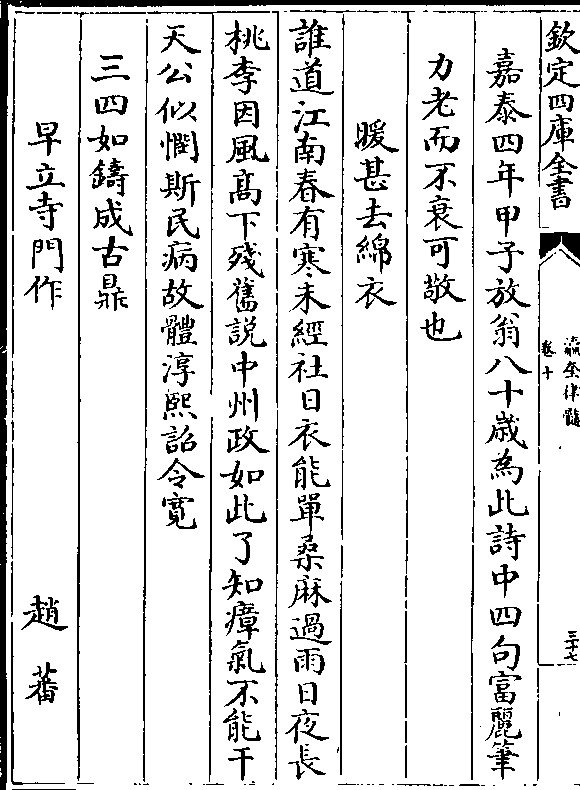 欽定四庫全書
瀛奎律髓
卷十
三十七
嘉泰四年甲子放翁八十歳為此詩中四句富麗筆
力老而不衰可敬也
暖甚去綿衣
誰道江南春有寒未經社日衣能單桑麻過雨日夜長
桃李因風髙下殘舊説中州政如此了知瘴氣不能干
天公似憫斯民病故體淳熙詔令寛
三四如鑄成古鼎
早立寺門作
趙蕃